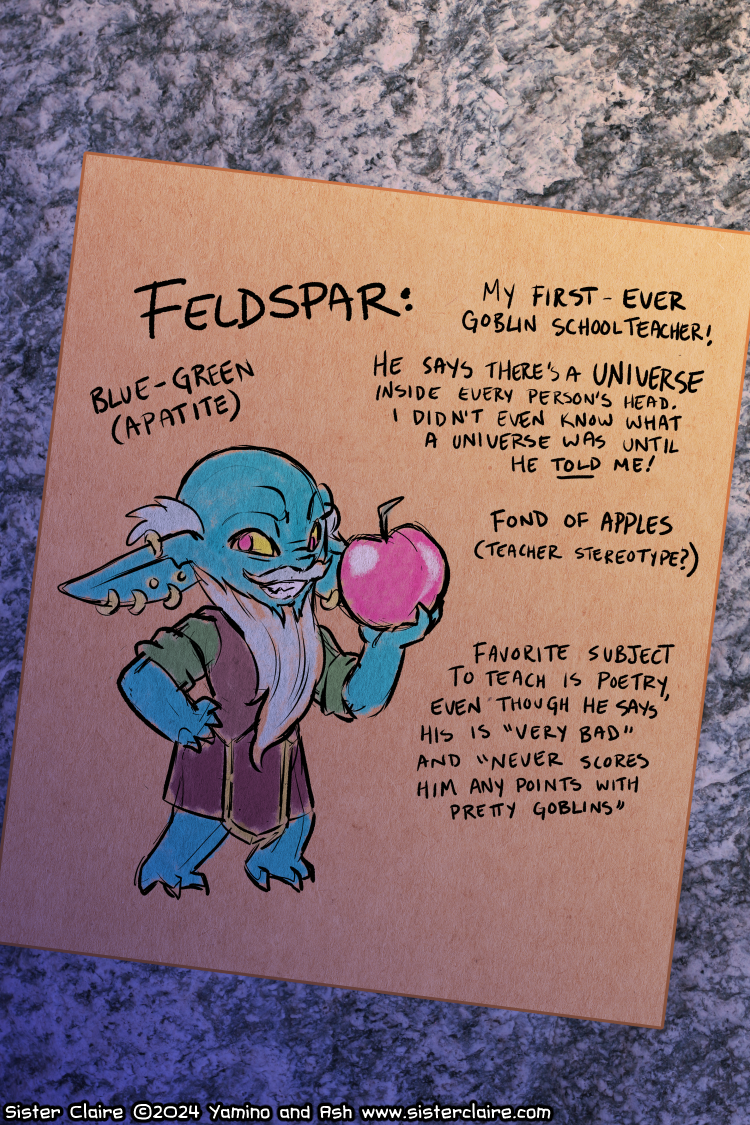 FELDSPAR:
BLUE-GREEN
(APATITE)
MY FIRST-EVER
GOBLIN SCHOOLTEACHER!
HE SAYS THERE'S A UNIVERSE
INSIDE EVERY PERSON'S HEAD.
I DIDN'T EVEN KNOW WHAT
A UNIVERSE WAS UNTIL
HE TOLD ME!
FOND OF APPLES
(TEACHER STEREOTYPE?)
FAVORITE SUBJECT
TO TEACH IS POETRY,
EVEN THOUGH HE SAYS
HIS IS "VERY BAD"
AND "NEVER SCORES
HIM ANY POINTS WITH
PRETTY GOBLINS"
Sister Claire ©2024 Yamino and Ash www.sisterclaire.com